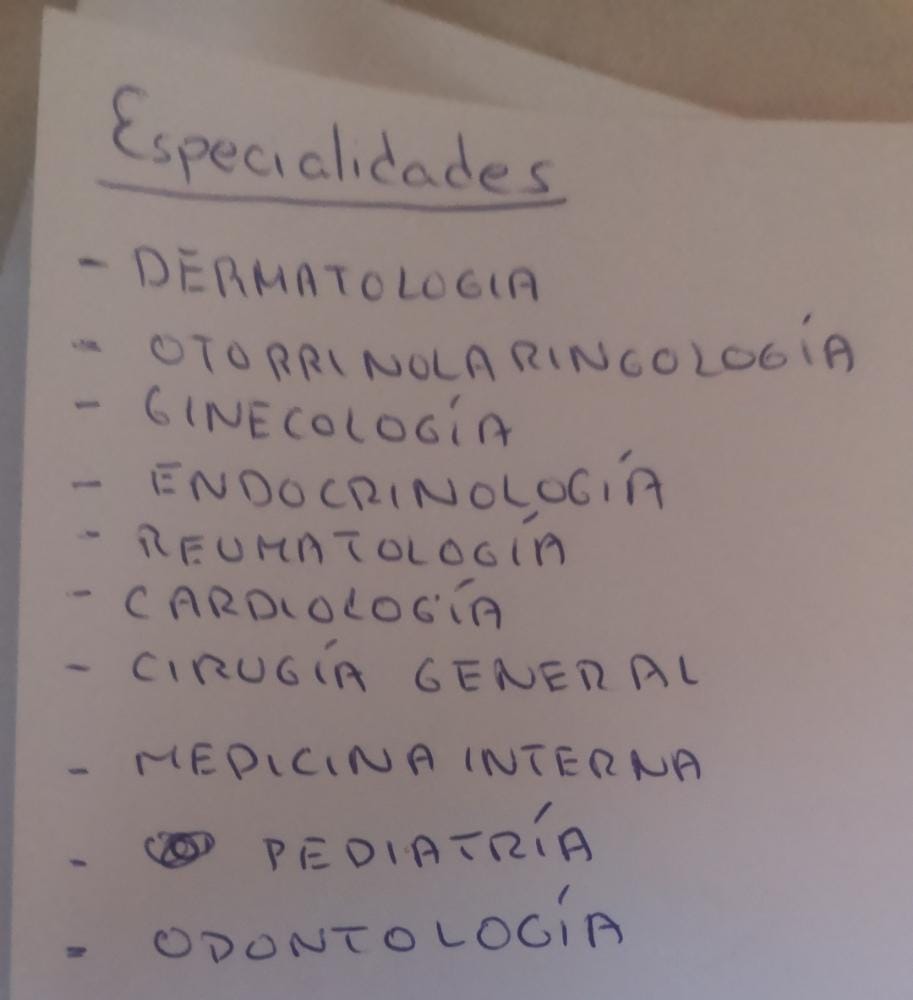 Especialidades
- DERMATOLOGIA
- OTORRINOLARINGOLOGÍA
- GINECOLOGÍA
- ENDOCRINOLOGÍA
- REUMATOLOGÍA
- CARDIOLOGÍA
- CIRUGÍA GENERAL
- MEDICINA INTERNA
- PEDIATRÍA
- ODONTOLOGÍA